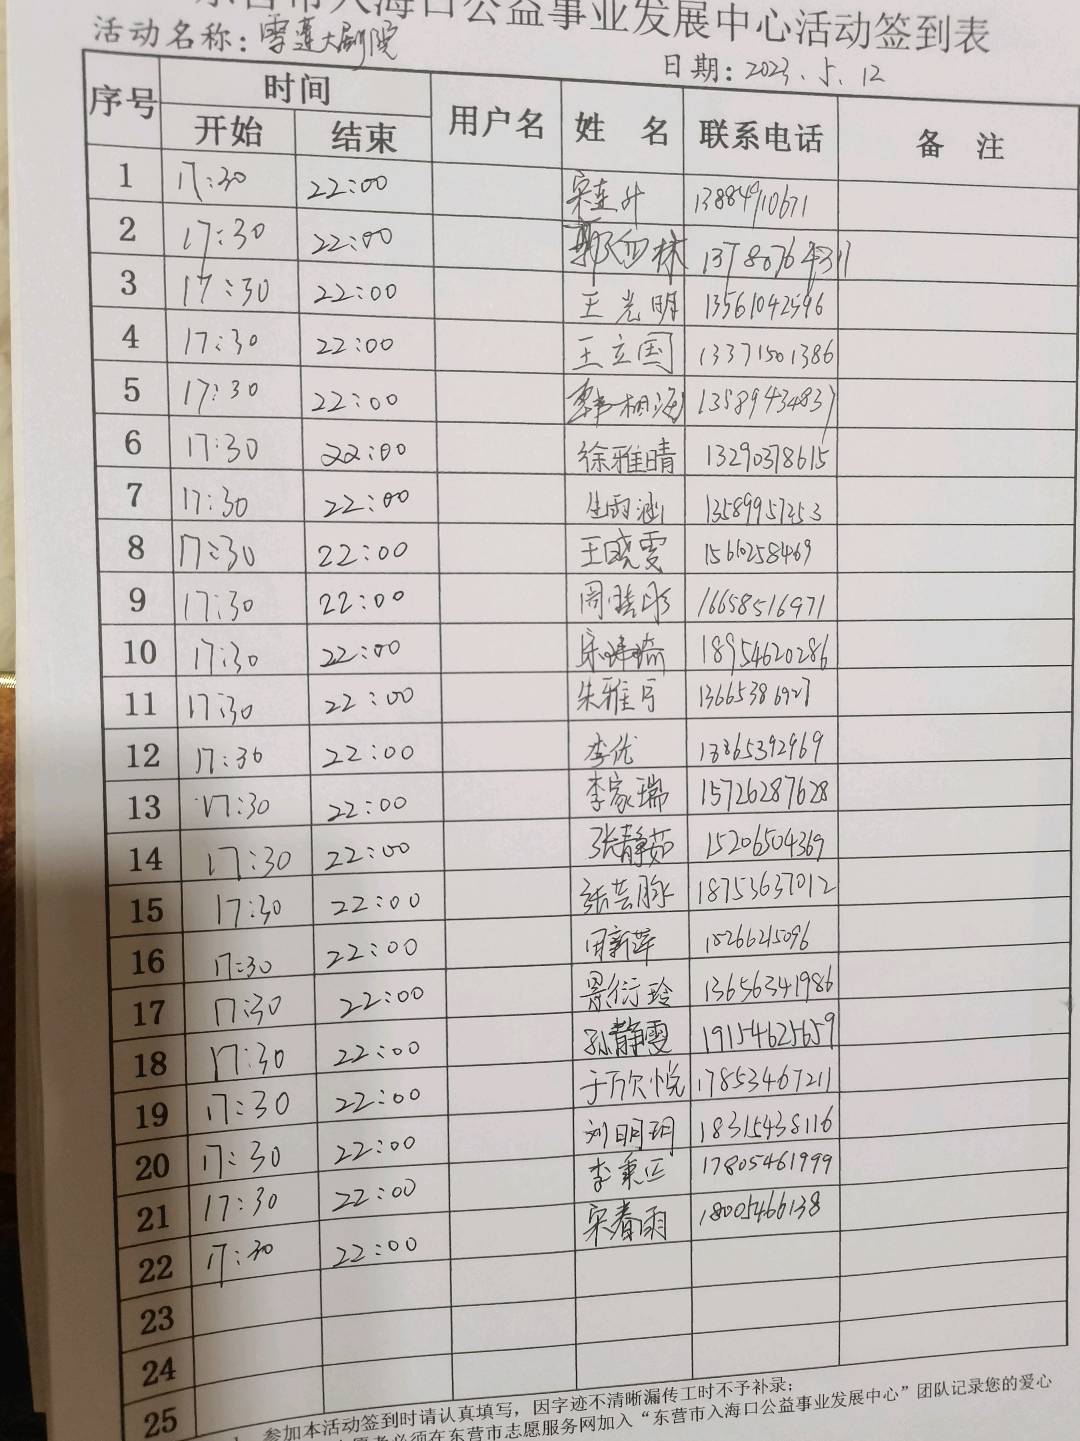 东营市入海口公益事业发展中心活动签到表
活动名称：雪莲大剧院
日期：2023.5.12
序号 时间 用户名 姓 名 联系电话 备 注
开始 结束
1 17:30 22:00 宋连升 13884910671
2 17:30 22:00 林 13780764311
3 17:30 22:00 王光明 13561042596
4 17:30 22:00 王立国 13371501386
5 17:30 22:00 13589434837
6 17:30 22:00 徐雅晴 13290378615
7 17:30 22:00 生雨涵 13589957253
8 17:30 22:00 王晓雯 15610258469
9 17:30 22:00 周 16658516971
10 17:30 22:00 宋 18954620286
11 17:30 22:00 朱雅 13665386927
12 17:30 22:00 李优 13865392969
13 17:30 22:00 李家瑞 15726287628
14 17:30 22:00 张静茹 15206504369
15 17:30 22:00 张芸 18753637012
16 17:30 22:00 田新萍 18266215096
17 17:30 22:00 景衍玲 13656341986
18 17:30 22:00 孙静雯 19154625659
19 17:30 22:00 于欣悦 17853467211
20 17:30 22:00 刘明玥 18315438116
21 17:30 22:00 李秉正 17805461999
22 17:30 22:00 宋春雨 18005466138
23
24
25
参加本活动签到时请认真填写，因字迹不清晰漏传工时不予补录；
必须在东营市志愿服务网加入“东营市入海口公益事业发展中心”团队记录您的爱心